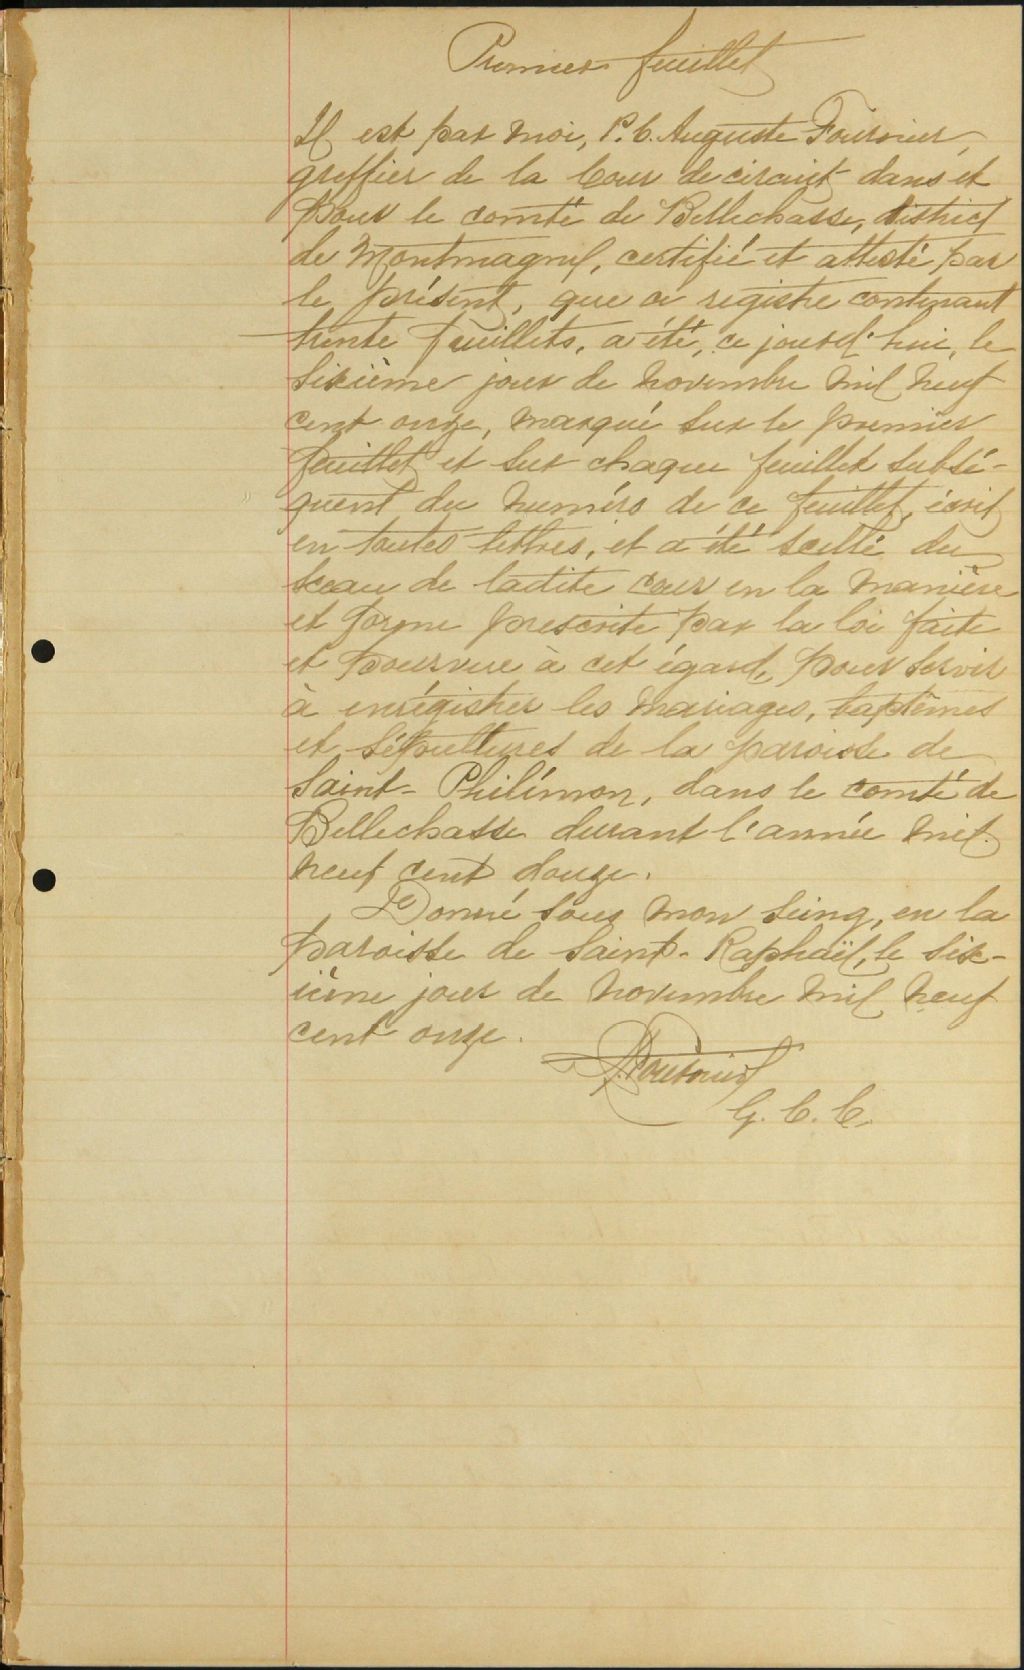 Premier feuillet
Il est par moi, P. C. Auguste Fournier,
greffier de la Cour de circuit dans et
pour le comté de Bellechasse, district
de Montmagny, certifié et attesté par
le présent, que ce registre contenant
trente feuillets, a été, ce jourd'hui, le
sixième jour de novembre mil neuf
cent onze, marqué sur le premier
feuillet et sur chaque feuillet subsé-
quent du numéro de ce feuillet, écrit
en toutes lettres, et a été scellé du
sceau de ladite cour en la manière
et forme prescrite par la loi faite
et pourvue à cet égard, pour servir
à enrégistrer les mariages, baptêmes
et sépultures de la paroisse de
Saint-Philémon, dans le comté de
Bellechasse durant l'année mil
neuf cent douze.
Donné sous mon seing, en la
paroisse de Saint-Raphaël, le six-
ième jour de novembre mil neuf
cent onze.
A. Fournier
G. C. C.